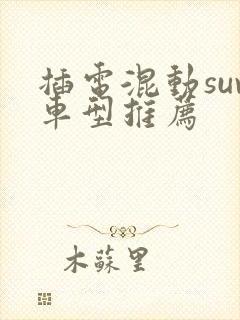 插電混動suv
車型推薦
木蘇里